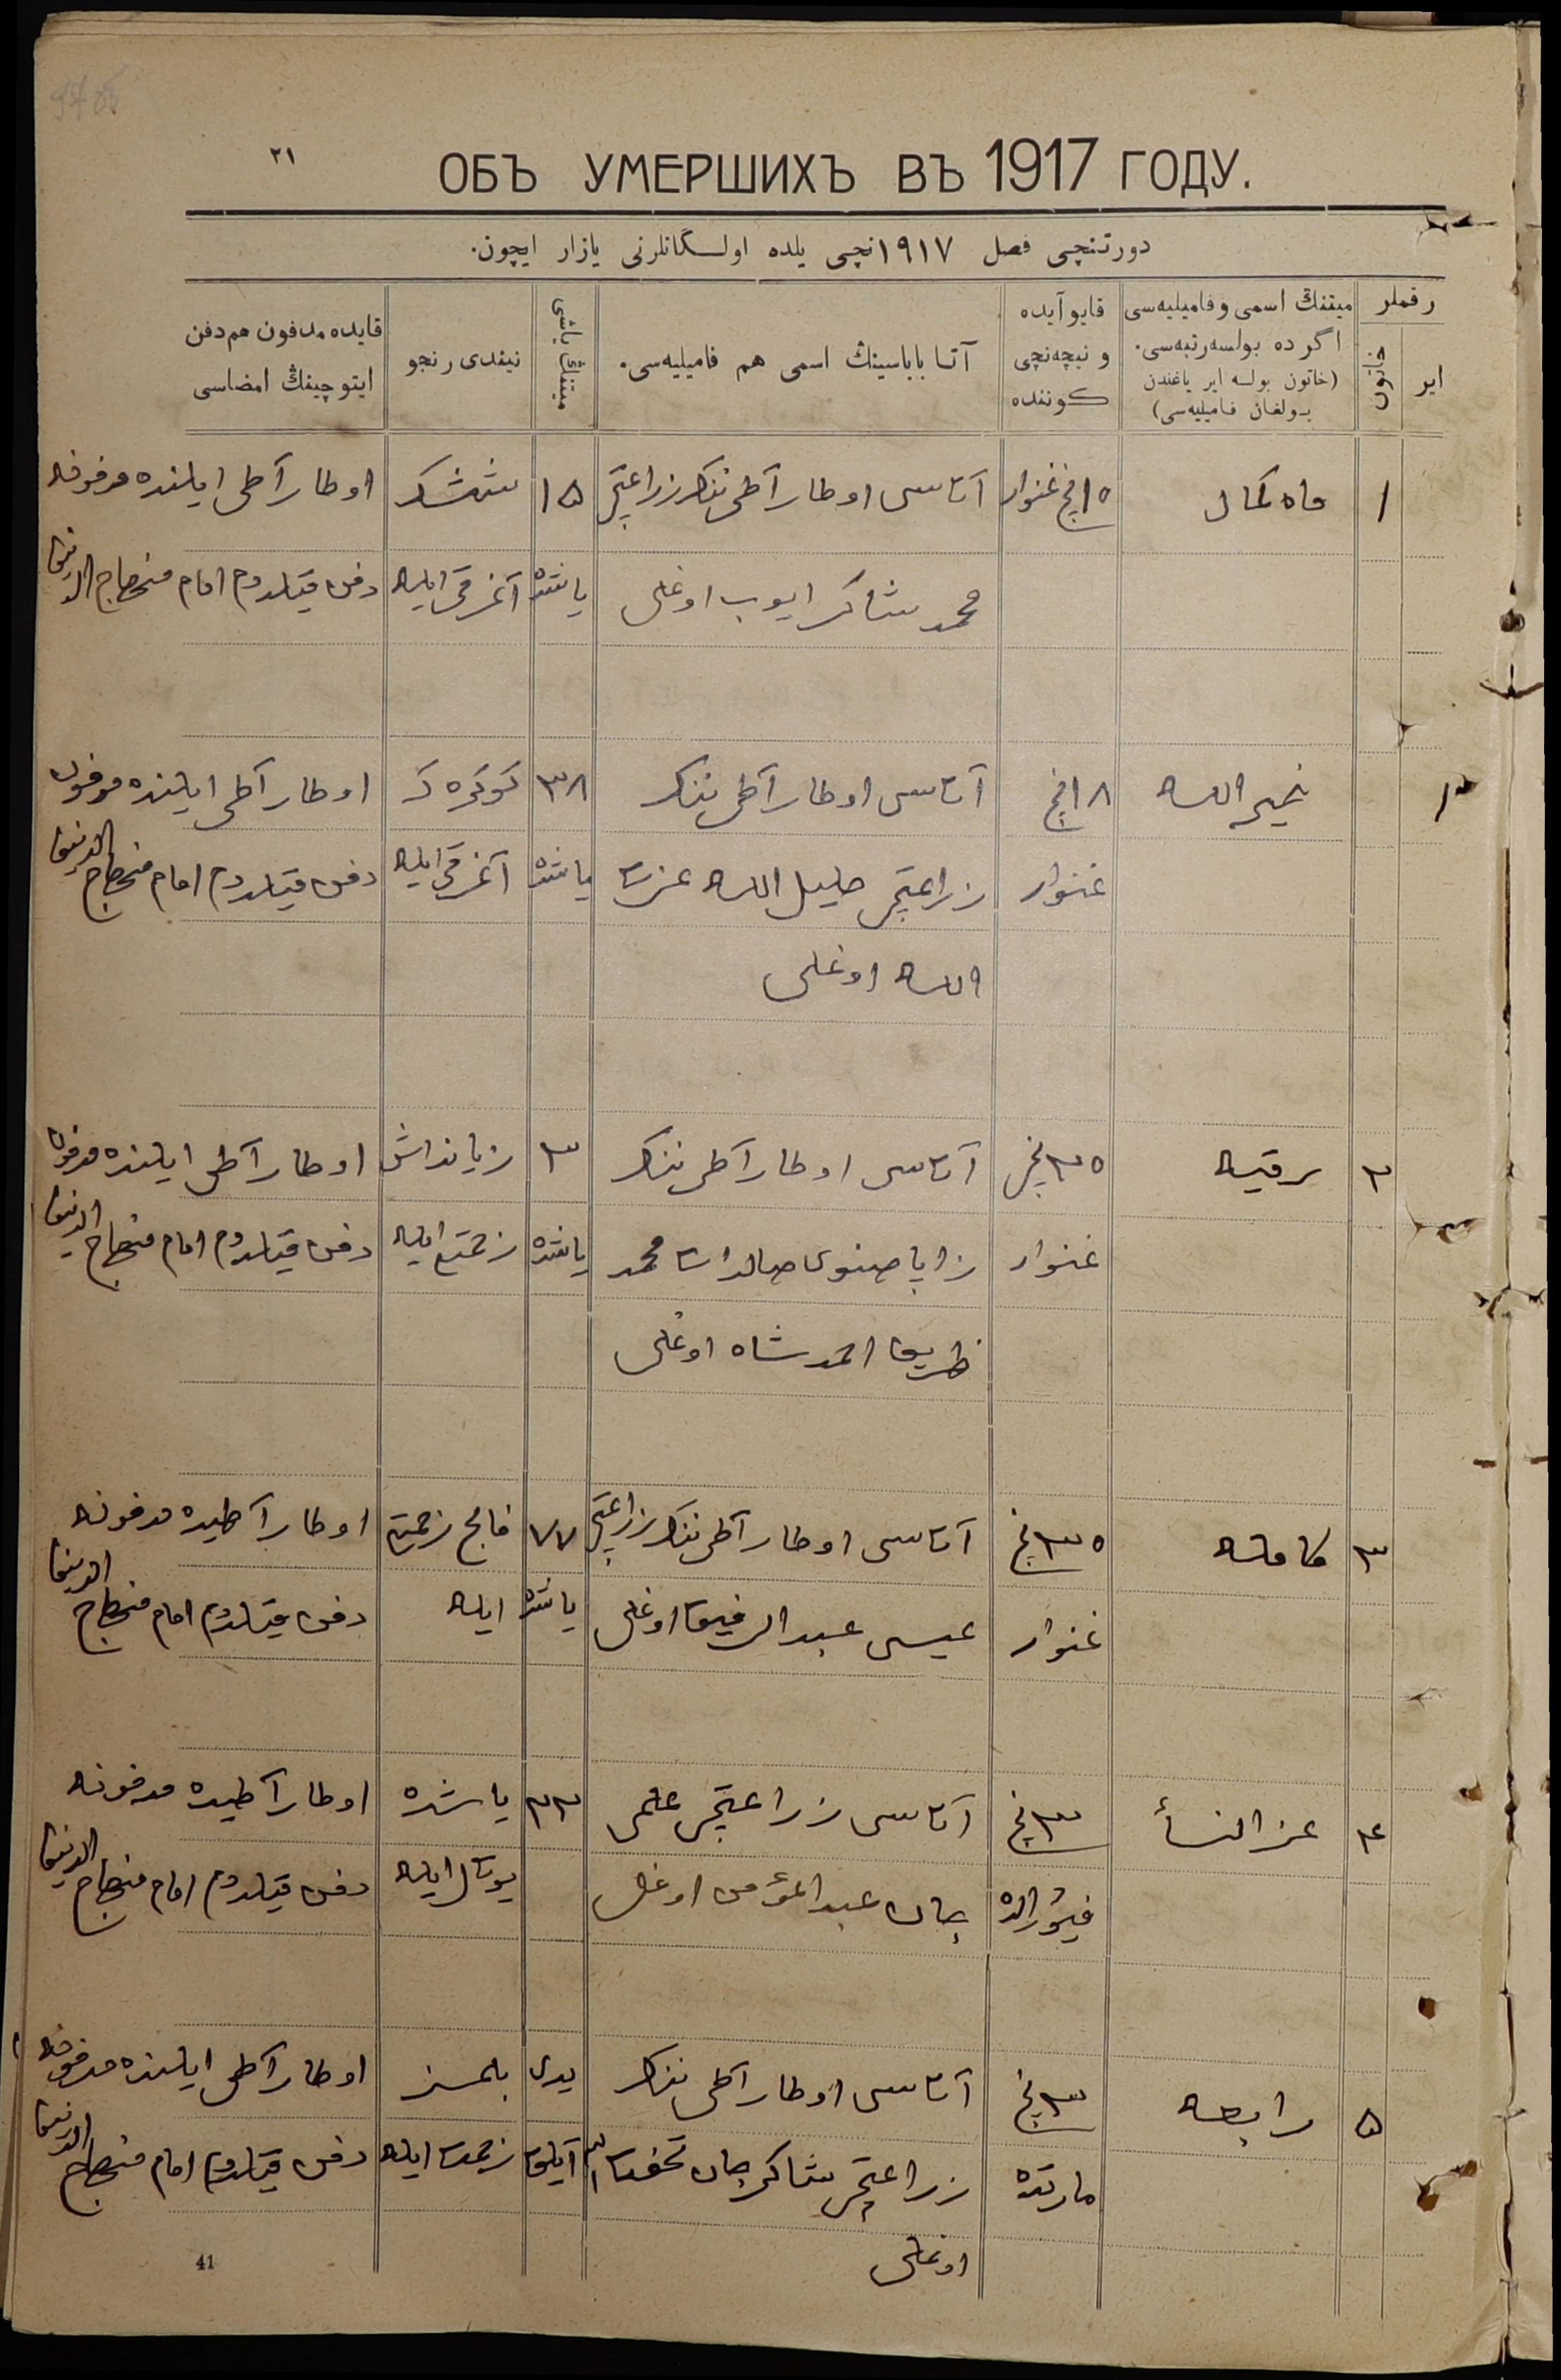 ٢١
ОБЪ УМЕРШИХЪ ВЪ 1917 ГОДУ.
دورتنچی فصل ١٩١٧نچی یلده اولسگانلرنی یازار ایچون.
رقملر
ایر
خاتون
میتنڭ اسمی و فامیلیه‌سی
اگر ده بولسه رتبه‌سی.
(خاتون بولسه ایر یاغندن
بولغان فامیلیه‌سی)
قایو آیده
و نیچه‌نچی
کوننده
آتا باباسینڭ اسمی هم فامیلیه‌سی.
میتنڭ یاشی
نیندی رنجو
قایده مدفون هم دفن
ایتوچینڭ امضاسی
١
ماه کمال
١٥نچی غنوار
آتاسی اوطار آطی ننکر زراعتچی
محمد شاکر ایوب اوغلی
١٥
یاشنده
ششک
آغرقی ایله
اوطار آطی ایلنده مدفونه
دفن قیلدوم امام منهاج الدین
١
خیر الله
١٨نچی
غنوار
آتاسی اوطار آطی ننکر
زراعتچی خلیل الله عزت
الله اوغلی
٣٨
یاشنده
کوکره ک
آغرقی ایله
اوطار آطی ایلنده مدفون
دفن قیلدوم امام منهاج الدین
٢
رقیه
٢٥نچی
غنوار
آتاسی اوطار آطی ننکر
محمد
ظریف احمد شاه اوغلی
٢
یاشنده
زحمتی ایله
اوطار آطی ایلنده مدفون
دفن قیلدوم امام منهاج الدین
٣
کامله
٢٥نچی
غنوار
آتاسی اوطار آطی ننکر زراعتچی
عیسی عبد الرفیق اوغلی
٧٧
یاشنده
فالج زحمتی
ایله
اوطار آطیده مدفونه
دفن قیلدوم امام منهاج الدین
٤
عز النسأ
٢نچی
فیورالده
آتاسی زراعتچی علمی
جان عبد المؤمن اوغلی
٢٢
یاشده
یوتال ایله
اوطار آطیده مدفونه
دفن قیلدوم امام منهاج الدین
٥
رابعه
٢نچی
مارتده
آتاسی اوطار آطی ننکر
زراعتچی شاکر جان
اوغلی
یدی
آیلق
بلمسز
زحمت ایله
اوطار آطی ایلنده مدفونه
دفن قیلدوم امام منهاج الدین
41